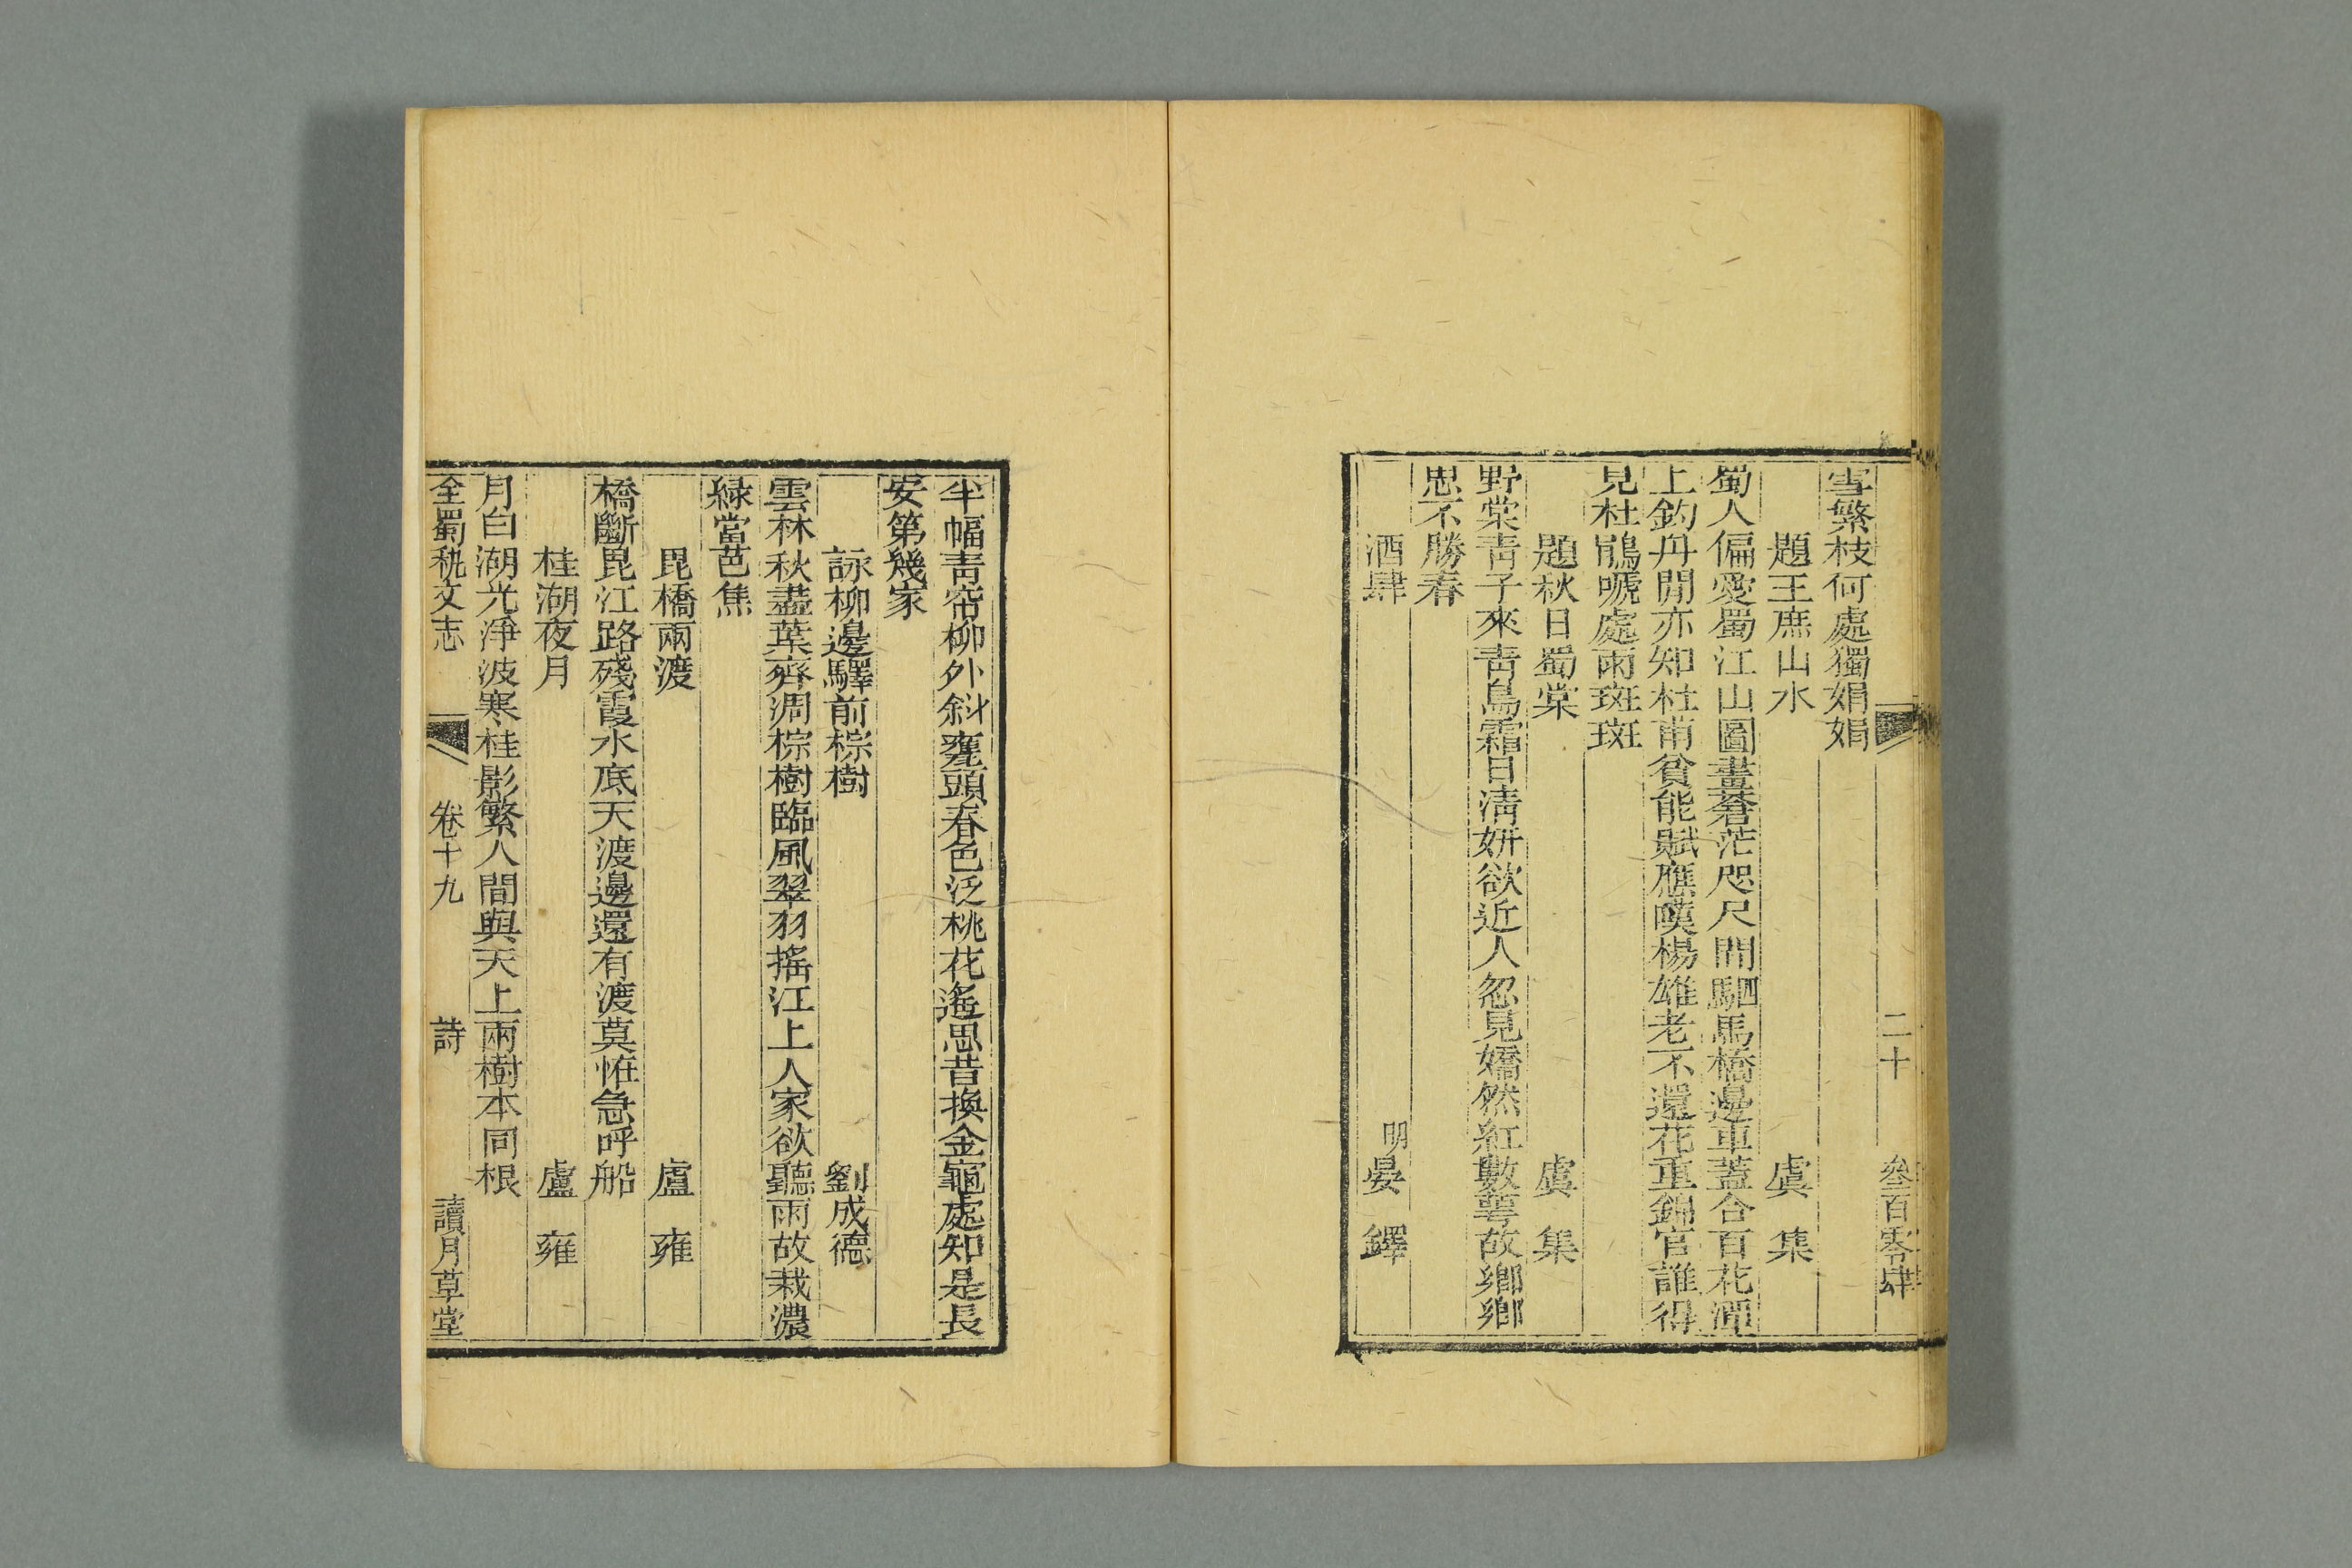 二十 叁百零肆
雪繁枝何處獨娟娟
題王庶山水 虞集
蜀人偏愛蜀江山圖畫蒼茫咫尺間駟馬橋邊車蓋合百花潭
上釣舟閒亦知杜甫貧能賦應嘆楊雄老不還花重錦官誰得
見杜鵑唬處雨斑斑
題秋日蜀棠 虞集
野棠青子來青鳥霜日清妍欲近人忽見嬌然紅數萼故鄉鄉
思不勝春
酒肆 明晏鐸
半幅青帘柳外斜甕頭春色泛桃花遙思昔換金龜處知是長
安第幾家
詠柳邊驛前棕樹 劉成德
雲林秋盡葉齊凋棕樹臨風翠羽搖江上人家欲聽雨故栽濃
綠當芭焦
毘橋兩渡 盧雍
橋斷毘江路殘霞水底天渡邊還有渡莫怪急呼船
桂湖夜月 盧雍
月白湖光淨波寒桂影繁人間與天上兩樹本同根
全蜀秇文志 卷十九 詩 讀月草堂